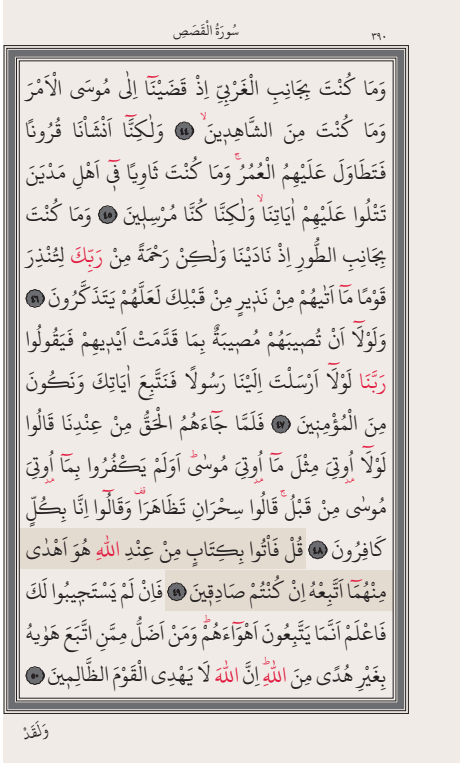 سُورَةُ الْقَصَصِ ٣٩٠
وَمَا كُنْتَ بِجَانِبِ الْغَرْبِيِّ اِذْ قَضَيْنَٓا اِلٰى مُوسَى الْاَمْرَ
وَمَا كُنْتَ مِنَ الشَّاهِدِينَۙ ﴿٤٤﴾ وَلٰكِنَّٓا اَنْشَأْنَا قُرُونًا
فَتَطَاوَلَ عَلَيْهِمُ الْعُمُرُۚ وَمَا كُنْتَ ثَاوِيًا فٓي اَهْلِ مَدْيَنَ
تَتْلُوا عَلَيْهِمْ اٰيَاتِنَاۙ وَلٰكِنَّا كُنَّا مُرْسِلِينَ ﴿٤٥﴾ وَمَا كُنْتَ
بِجَانِبِ الطُّورِ اِذْ نَادَيْنَا وَلٰكِنْ رَحْمَةً مِنْ رَبِّكَ لِتُنْذِرَ
قَوْمًا مَٓا اَتٰيهُمْ مِنْ نَذِيرٍ مِنْ قَبْلِكَ لَعَلَّهُمْ يَتَذَكَّرُونَ ﴿٤٦﴾
وَلَوْلَٓا اَنْ تُصِيبَهُمْ مُصِيبَةٌ بِمَا قَدَّمَتْ اَيْدِيهِمْ فَيَقُولُوا
رَبَّنَا لَوْلَٓا اَرْسَلْتَ اِلَيْنَا رَسُولًا فَنَتَّبِعَ اٰيَاتِكَ وَنَكُونَ
مِنَ الْمُؤْمِنِينَ ﴿٤٧﴾ فَلَمَّا جَٓاءَهُمُ الْحَقُّ مِنْ عِنْدِنَا قَالُوا
لَوْلَٓا اُو۫تِيَ مِثْلَ مَٓا اُو۫تِيَ مُوسٰىۜ اَوَلَمْ يَكْفُرُوا بِمَٓا اُو۫تِيَ
مُوسٰى مِنْ قَبْلُۚ قَالُوا سِحْرَانِ تَظَاهَرَا۠ وَقَالُٓوا اِنَّا بِكُلٍّ
كَافِرُونَ ﴿٤٨﴾ قُلْ فَأْتُوا بِكِتَابٍ مِنْ عِنْدِ اللّٰهِ هُوَ اَهْدٰى
مِنْهُمَٓا اَتَّبِعْهُ اِنْ كُنْتُمْ صَادِقِينَ ﴿٤٩﴾ فَاِنْ لَمْ يَسْتَجِيبُوا لَكَ
فَاعْلَمْ اَنَّمَا يَتَّبِعُونَ اَهْوَٓاءَهُمْۜ وَمَنْ اَضَلُّ مِمَّنِ اتَّبَعَ هَوٰيهُ
بِغَيْرِ هُدًى مِنَ اللّٰهِۜ اِنَّ اللّٰهَ لَا يَهْدِي الْقَوْمَ الظَّالِمِينَ ﴿٥٠﴾
وَلَقَدْ